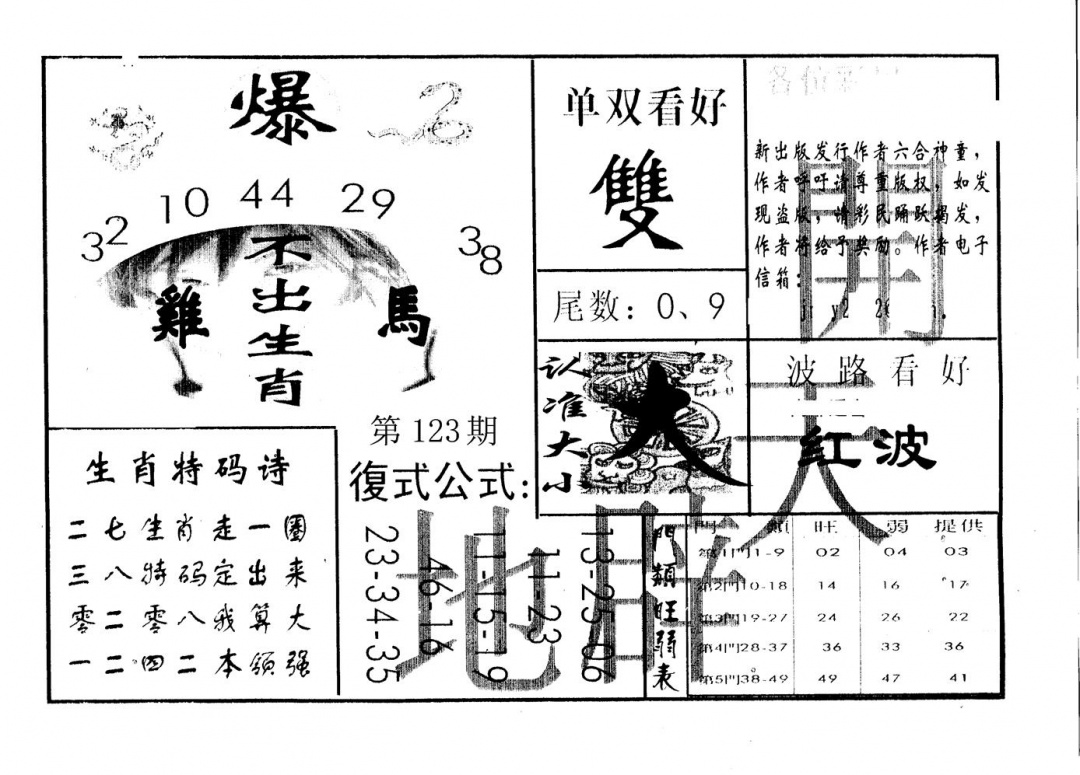 爆
32 10 44 29 38
不出生肖
雞 馬
第123期
復式公式:
23-34-35
46-16
11-15-19
11-23
13-25-06
生肖特码诗
二七生肖走一圈
三八特码定出来
零二零八我算大
一二四二本领强
单双看好
雙
尾数：0、9
认准大小
大
各位彩
新出版发行作者六合神童，
作者呼吁请尊重版权，如发
现盗版，请彩民踊跃揭发，
作者将给予奖励。作者电子
信箱：
波路看好
紅波
開天地睢
門類旺弱表
門類 旺 弱 提供
第1門1-9 02 04 03
第2門10-18 14 16 17
第3門19-27 24 26 22
第4門28-37 36 33 36
第5門38-49 49 47 41